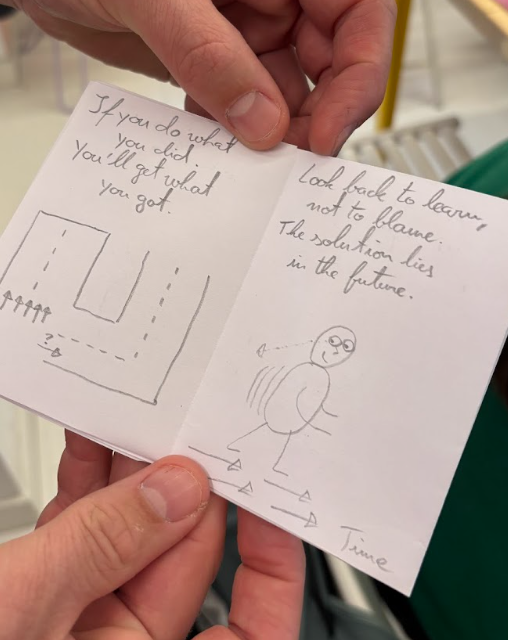 If you do what
you did.
You'll get what
you got.
?
Look back to learn,
not to blame.
The solution lies
in the future.
Time